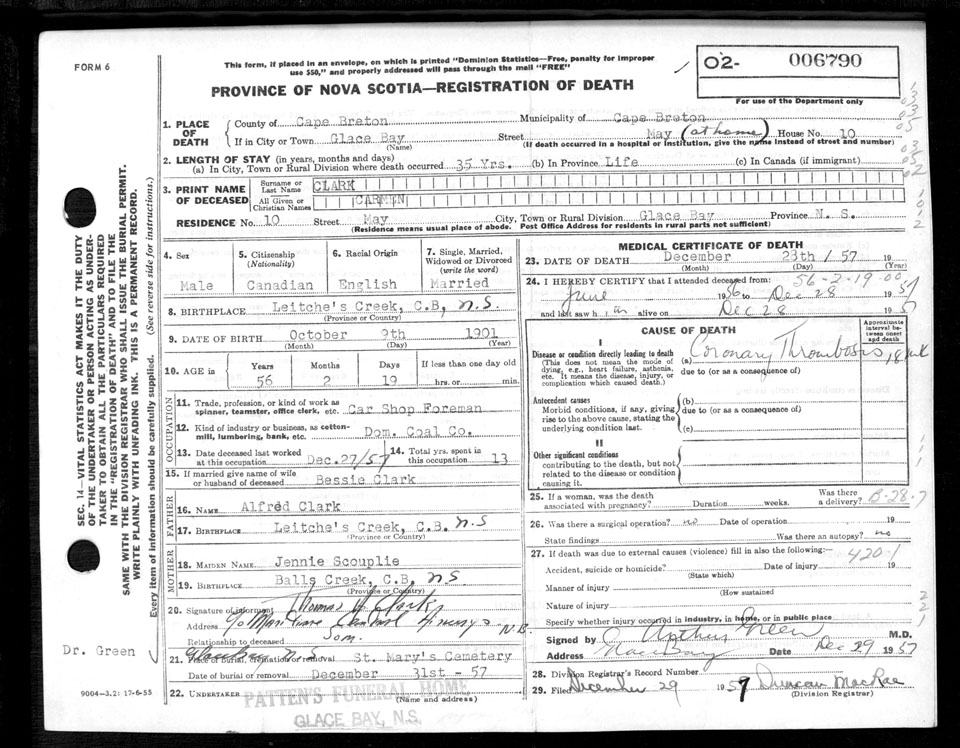 FORM 6
This form, if placed in an envelope, on which is printed "Dominion Statistics—Free, penalty for improper
use $50," and properly addressed will pass through the mail "FREE"
PROVINCE OF NOVA SCOTIA—REGISTRATION OF DEATH
02- 006790
For use of the Department only
1. PLACE OF DEATH
County of Cape Breton Municipality of Cape Breton
If in City or Town Glace Bay Street May (at home) House No. 10
(Name) (If death occurred in a hospital or institution, give the name instead of street and number)
2. LENGTH OF STAY (in years, months and days)
(a) In City, Town or Rural Division where death occurred 35 Yrs. (b) In Province Life (c) In Canada (if immigrant)
3. PRINT NAME OF DECEASED
Surname or Last Name CLARK
All Given or Christian Names CARMEN
RESIDENCE No. 10 Street May City, Town or Rural Division Glace Bay Province N. S.
(Residence means usual place of abode. Post Office Address for residents in rural parts not sufficient)
4. Sex
Male
5. Citizenship (Nationality)
Canadian
6. Racial Origin
English
7. Single, Married, Widowed or Divorced (write the word)
Married
8. BIRTHPLACE Leitche's Creek, C.B, N.S.
(Province or Country)
9. DATE OF BIRTH October 9th 1901
(Month) (Day) (Year)
10. AGE in Years Months Days If less than one day old
56 2 19 hrs. or min.
OCCUPATION
11. Trade, profession, or kind of work as
spinner, teamster, office clerk, etc. Car Shop Foreman
12. Kind of industry or business, as cotton-
mill, lumbering, bank, etc. Dom. Coal Co.
13. Date deceased last worked at this occupation Dec.27/57
14. Total yrs. spent in this occupation 13
15. If married give name of wife
or husband of deceased Bessie Clark
FATHER
16. Name Alfred Clark
17. Birthplace Leitche's Creek, C.B. N.S
(Province or Country)
MOTHER
18. Maiden Name Jennie Scouplie
19. Birthplace Balls Creek, C.B, N.S
(Province or Country)
20. Signature of informant Thomas W Clark
Address N.B.
Relationship to deceased Son.
21. Place of burial, cremation or removal Glace Bay N.S St. Mary's Cemetery
Date of burial or removal December 31st - 57
22. Undertaker PATTEN'S FUNERAL HOME
(Name and Address)
GLACE BAY, N.S.
MEDICAL CERTIFICATE OF DEATH
23. DATE OF DEATH December 28th / 57 19
(Month) (Day) (Year)
56-2-19
24. I HEREBY CERTIFY that I attended deceased from:
June 1956 to Dec 28 1957
and last saw him alive on Dec 28 1957
CAUSE OF DEATH
Approximate interval between onset and death
I
Disease or condition directly leading to death (a) Coronary Thrombosis
(This does not mean the mode of dying, e.g., heart failure, asthenia, etc. It means the disease, injury, or complication which caused death.)
due to (or as consequence of)
Antecedent causes (b)
Morbid conditions, if any, giving rise to the above cause, stating the underlying condition last.
due to (or as a consequence of)
(c)
II
Other significant conditions
contributing to the death, but not related to the disease or condition causing it.
25. If a woman, was the death associated with pregnancy? Duration weeks. Was there a delivery?
26. Was there a surgical operation? no Date of operation 19
State findings Was there an autopsy? no
27. If death was due to external causes (violence) fill in also the following: 420-1
Accident, suicide or homicide? Date of injury 19
(State which)
Manner of injury
(How sustained
Nature of injury
Specify whether injury occurred in industry, in home, or in public place
Signed by Arthur Green M.D.
Address Glace Bay Date Dec 29 1957
28. Division Registrar's Record Number
29. Filed December 29 1957 Duncan MacRae
(Division Registrar)
SEC. 14—VITAL STATISTICS ACT MAKES IT THE DUTY
OF THE UNDERTAKER OR PERSON ACTING AS UNDER-
TAKER TO OBTAIN ALL THE PARTICULARS REQUIRED
IN THE "REGISTRATION OF DEATH" AND TO FILE THE
SAME WITH THE DIVISION REGISTRAR WHO SHALL ISSUE THE BURIAL PERMIT.
WRITE PLAINLY WITH UNFADING INK. THIS IS A PERMANENT RECORD.
Every item of information should be carefully supplied. (See reverse side for instructions.)
Dr. Green
9004-3.2: 17-6-55